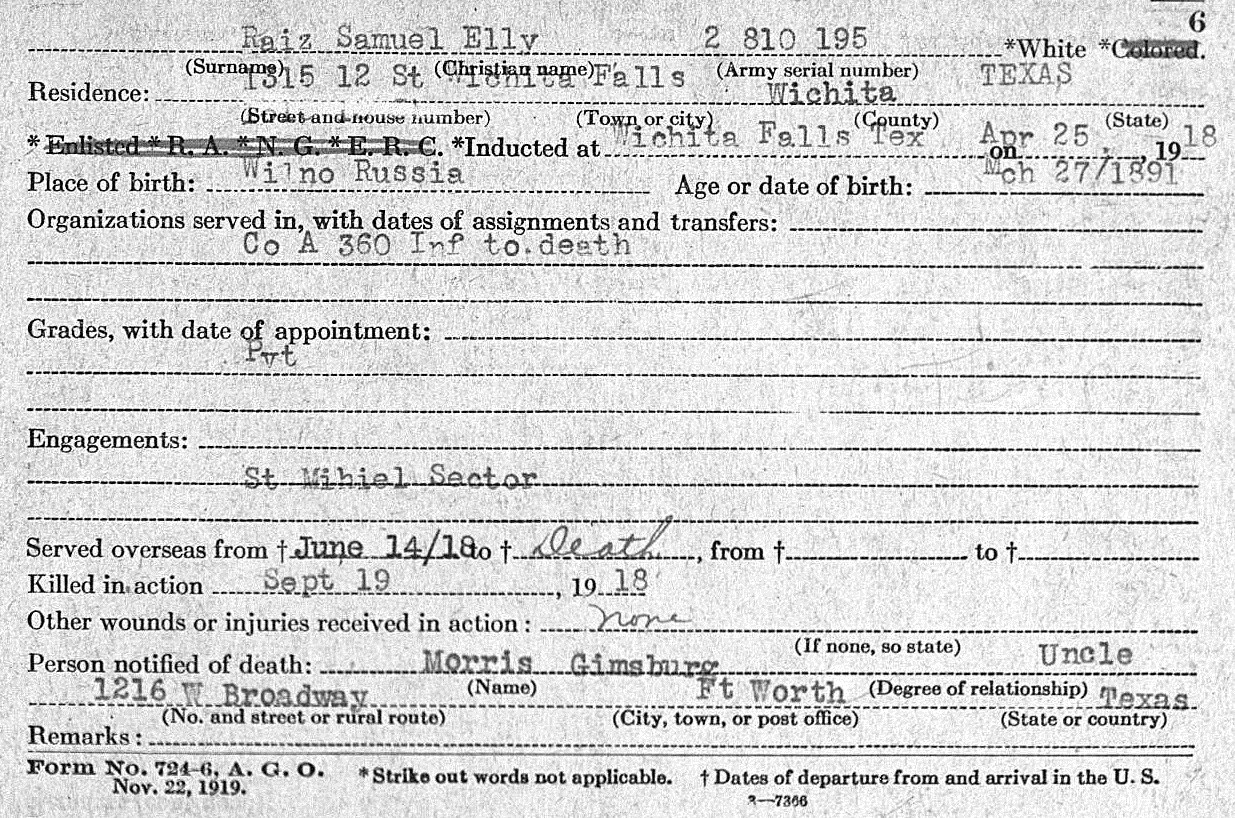 6
Raiz Samuel Elly 2 810 195 *White *Colored.
(Surname) (Christian name) (Army serial number)
Residence: 1315 12 St Wichita Falls Wichita TEXAS
(Street and house number) (Town or city) (County) (State)
*Enlisted *R. A. *N. G. *E. R. C. *Inducted at Wichita Falls Tex on Apr 25, 1918
Place of birth: Wilno Russia Age or date of birth: Mch 27/1891
Organizations served in, with dates of assignments and transfers:
Co A 360 Inf to death
Grades, with date of appointment:
Pvt
Engagements:
St Mihiel Sector
Served overseas from † June 14/18 to † Death, from † to †
Killed in action Sept 19, 1918
Other wounds or injuries received in action: none
(If none, so state)
Person notified of death: Morris Gimsburg Uncle
(Name) (Degree of relationship)
1216 W Broadway Ft Worth Texas
(No. and street or rural route) (City, town, or post office) (State or country)
Remarks:
Form No. 724-6, A. G. O. *Strike out words not applicable. † Dates of departure from and arrival in the U. S.
Nov. 22, 1919. 3—7366